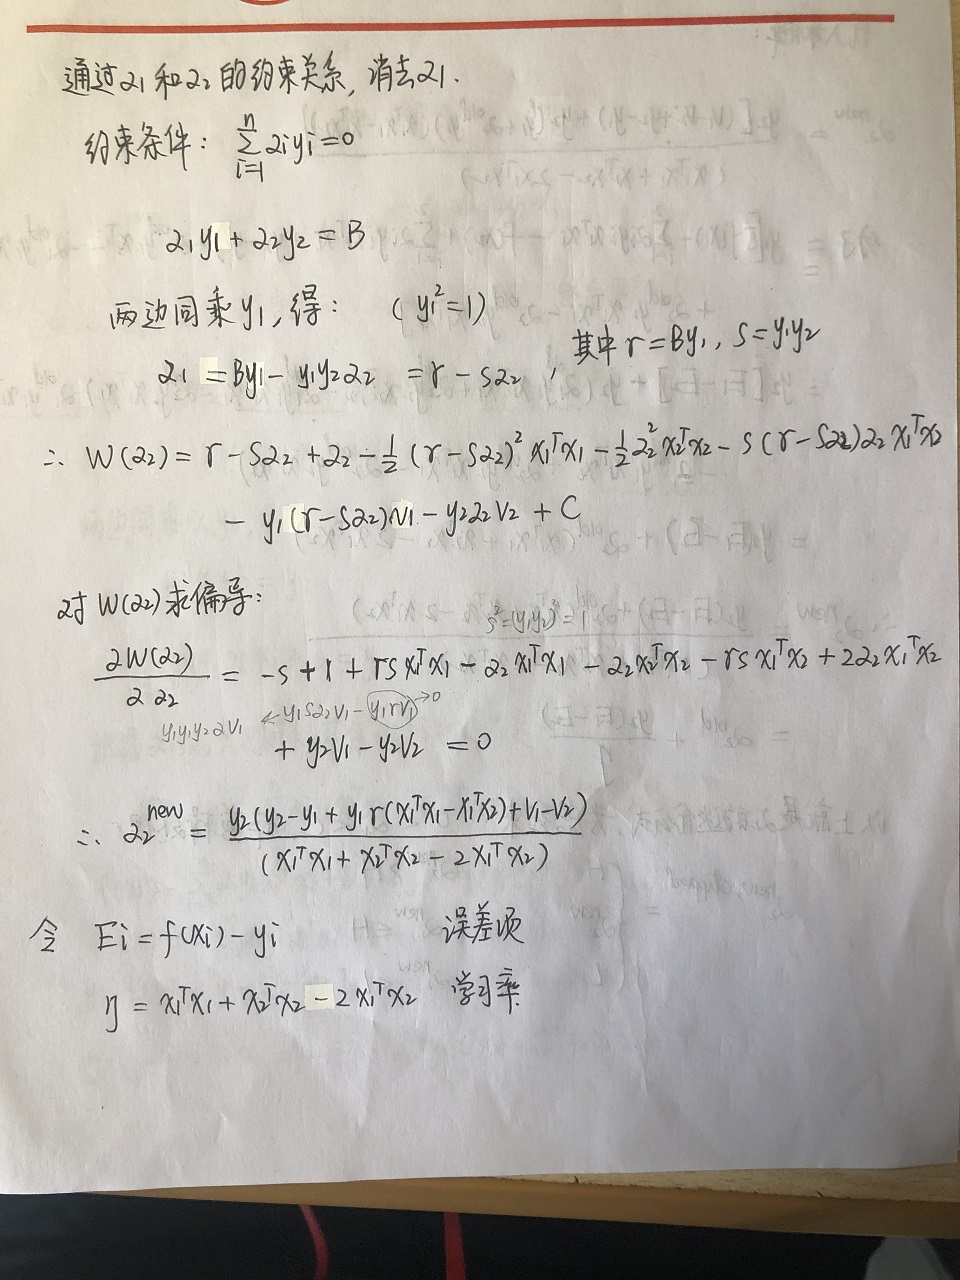 通过α₁和α₂的约束关系, 消去α₁.
约束条件: ∑ᵢ₌₁ⁿ αᵢyᵢ=0
α₁y₁+α₂y₂=B
两边同乘y₁, 得: (y₁²=1)
α₁=By₁-y₁y₂α₂ =r-sα₂, 其中r=By₁, s=y₁y₂
∴ W(α₂)=r-sα₂+α₂-½(r-sα₂)²x₁ᵀx₁-½α₂²x₂ᵀx₂-s(r-sα₂)α₂x₁ᵀx₂
-y₁(r-sα₂)v₁-y₂α₂v₂+C
对W(α₂)求偏导:
s²=(y₁y₂)²=1
∂W(α₂)/∂α₂ = -s+1+rsx₁ᵀx₁-α₂x₁ᵀx₁-α₂x₂ᵀx₂-rsx₁ᵀx₂+2α₂x₁ᵀx₂
y₁y₁y₂αv₁ ← y₁sα₂v₁-y₁rv₁→0
+y₂v₁-y₂v₂ =0
∴ α₂ⁿᵉʷ = y₂(y₂-y₁+y₁r(x₁ᵀx₁-x₁ᵀx₂)+v₁-v₂)/(x₁ᵀx₁+x₂ᵀx₂-2x₁ᵀx₂)
令 Eᵢ=f(xᵢ)-yᵢ 误差项
η=x₁ᵀx₁+x₂ᵀx₂-2x₁ᵀx₂ 学习率